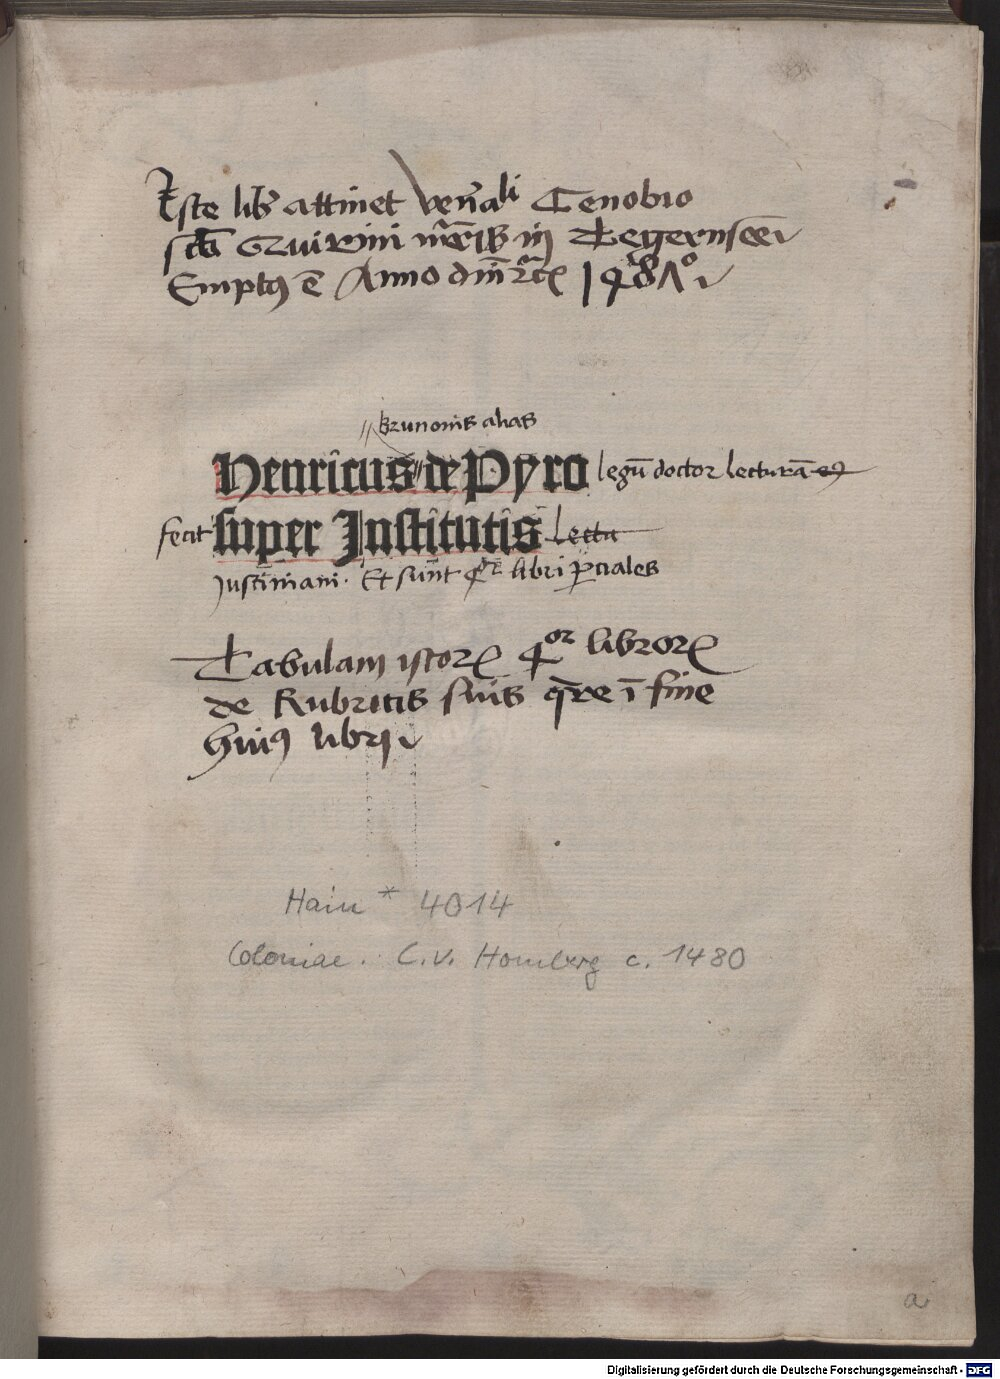 Iste lib᷒ attinet ven̄ali Cenobio
sc̄ti Quirini mr̄ēis in Tegernsee
Emptꝰ ē Anno dm̄ 1487°
Brunonis alias
Henricus de Pyro legū doctor lecturā
fecit super Institutis Lectu
Justiniani. Et sunt 4or libri ꝑciales
Tabulam istoꝝ 4or libroꝝ
de Rubricis suis q̄re ī fine
huiꝰ libri
Hain * 4014
Coloniae. C. v. Homberg c. 1480
a
Digitalisierung gefördert durch die Deutsche Forschungsgemeinschaft - DFG